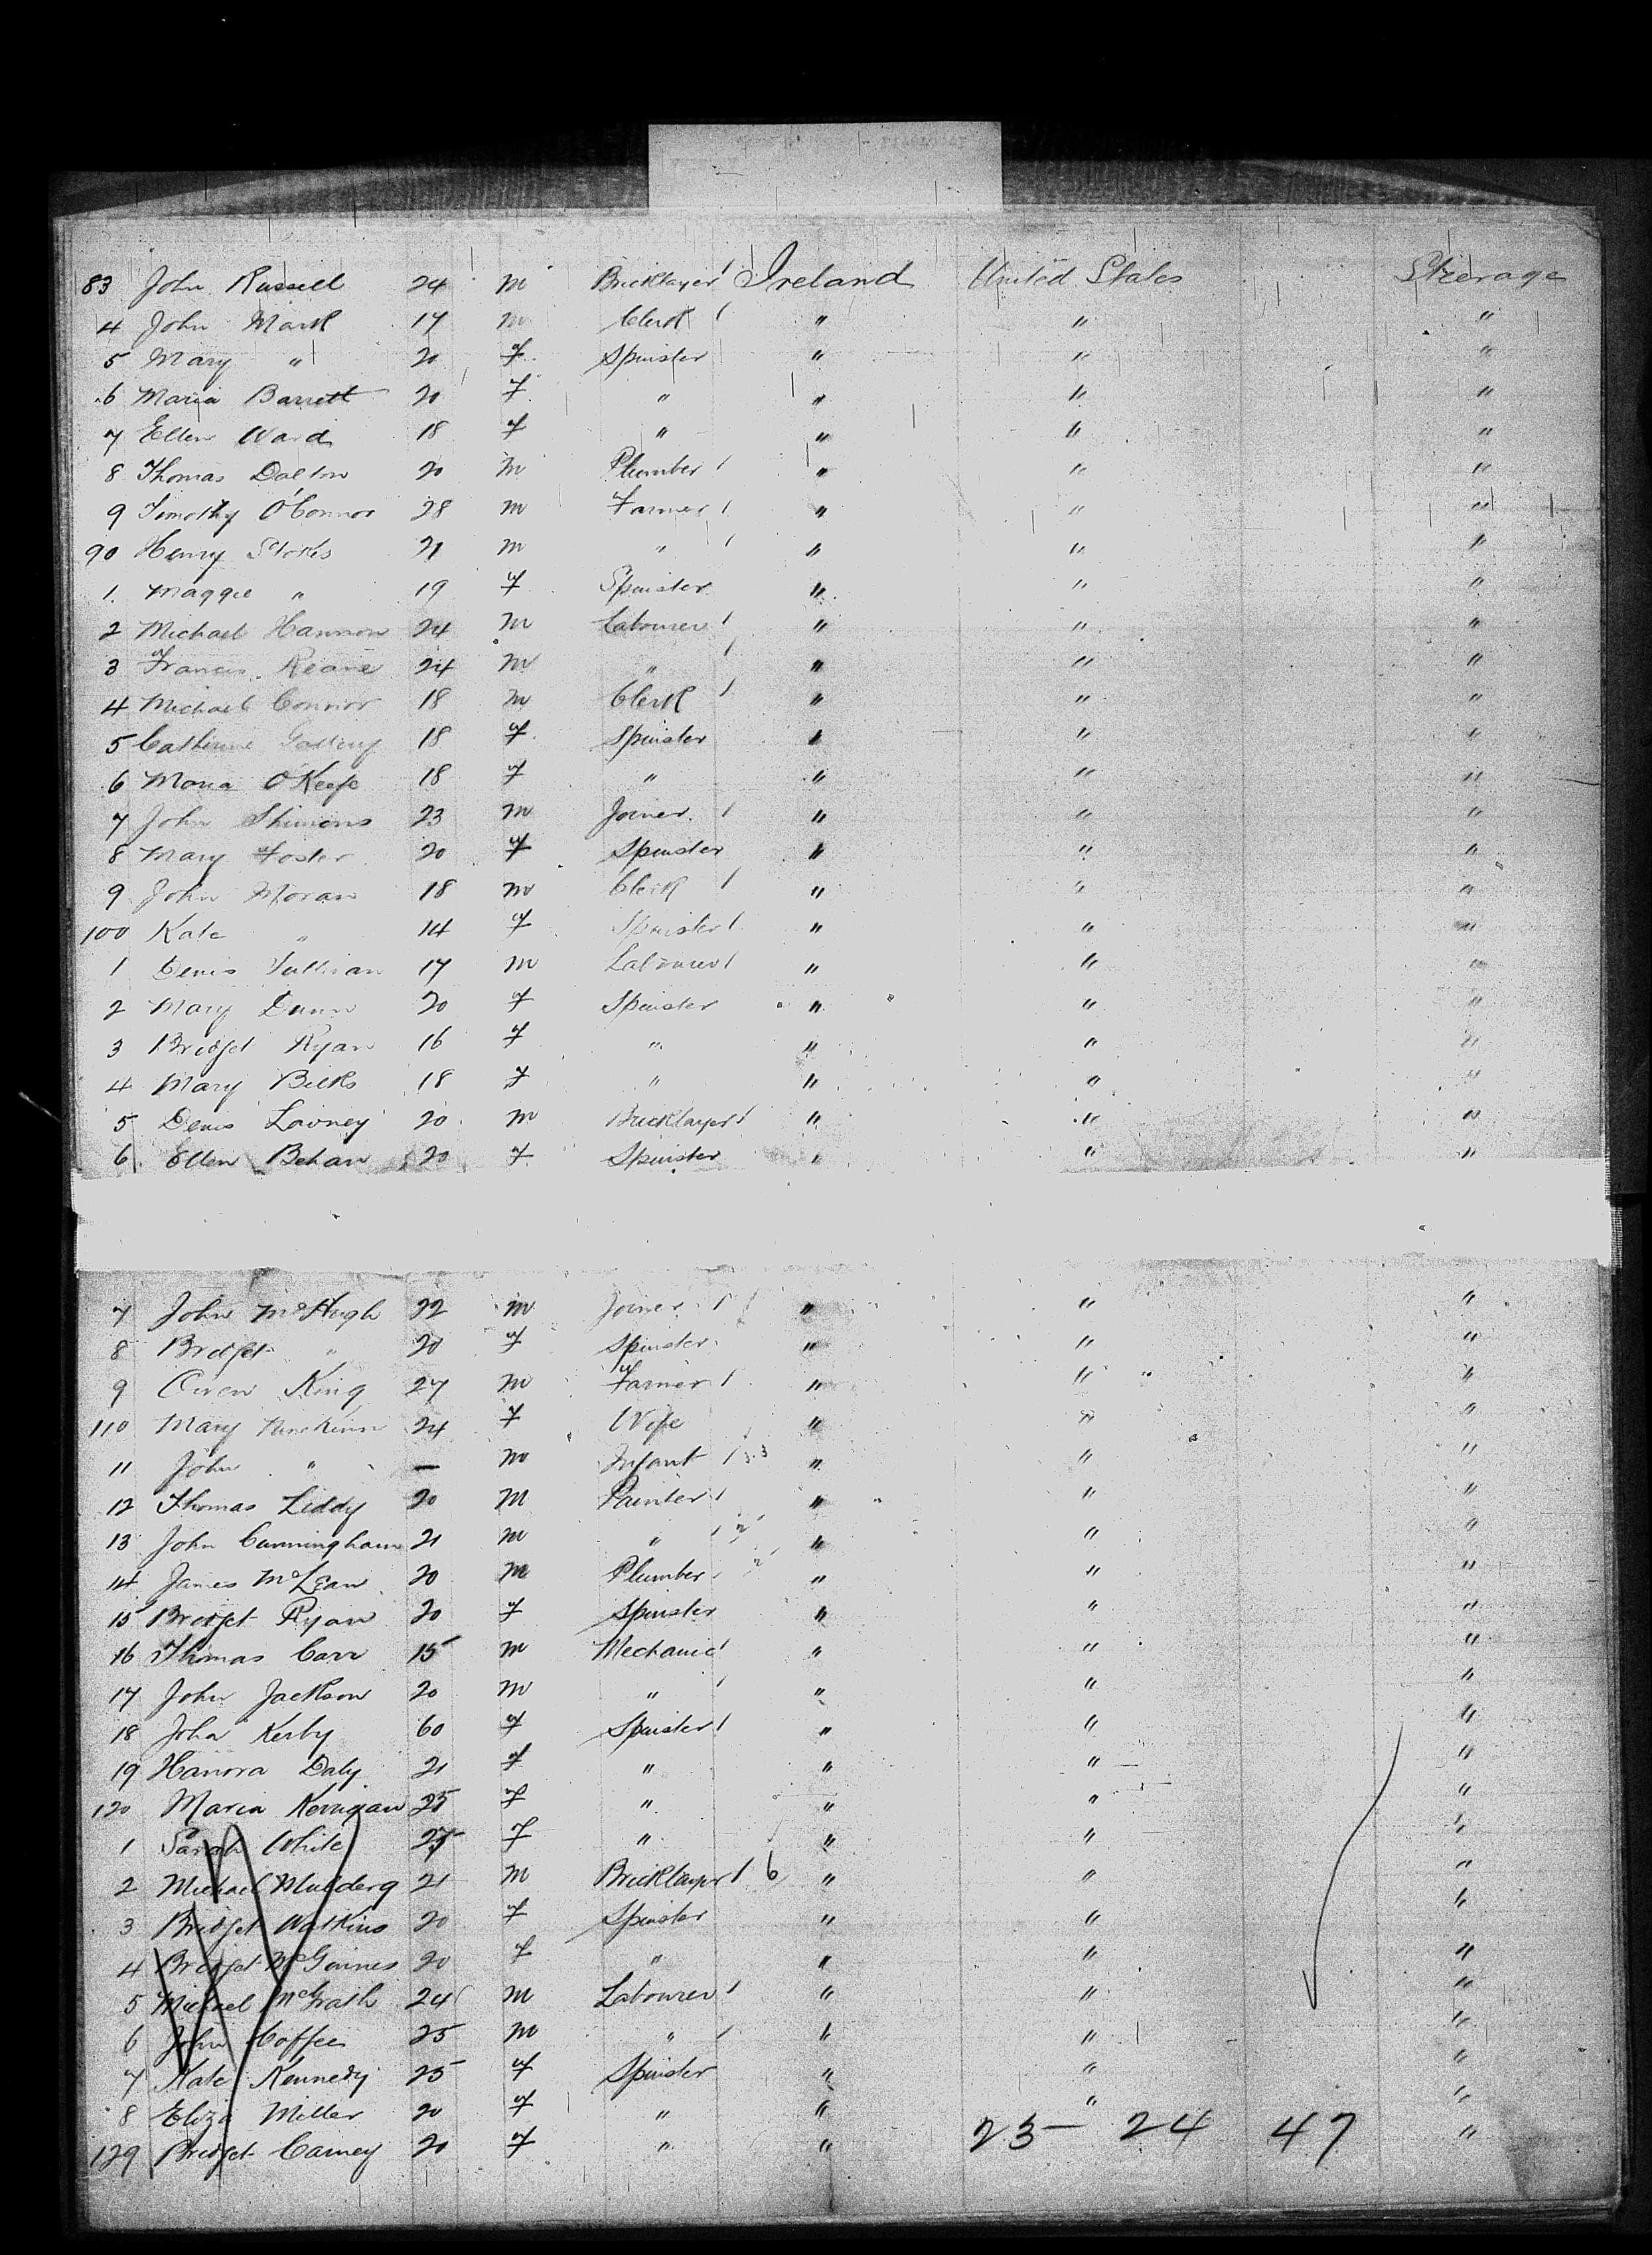 83 John Russell 24 m Bricklayer / Ireland United States Steerage
4 John Mark 17 m Clerk / " " "
5 Mary " 20 f Spinster " " "
6 Maria Barrett 20 f " " " "
7 Ellen Ward 18 f " " " "
8 Thomas Dalton 20 m Plumber / " " "
9 Timothy O'Connor 28 m Farmer / " " "
90 Henry Stokes 21 m " / " " "
1 Maggie " 19 f Spinster " " "
2 Michael Hannon 24 m Labourer / " " "
3 Francis Keane 24 m " / " " "
4 Michael Connor 18 m Clerk / " " "
5 Catherine 18 f Spinster " " "
6 Maria O'Keefe 18 f " " " "
7 John 23 m Joiner / " " "
8 Mary Foster 20 f Spinster " " "
9 John Moran 18 m Clerk / " " "
100 Kate " 14 f Spinster / " " "
1 Denis Sullivan 17 m Labourer / " " "
2 Mary Dunn 20 f Spinster " " "
3 Bridget Ryan 16 f " " " "
4 Mary 18 f " " " "
5 Denis 20 m Bricklayer / " " "
6 Ellen Behan 20 f Spinster " " "
7 John McHugh 22 m Joiner / " " "
8 Bridget " 20 f Spinster " " "
9 Owen King 27 m Farmer / " " "
110 Mary 24 f Wife " " "
11 John " — m Infant / " " "
12 Thomas Liddy 20 m Painter / " " "
13 John Cunningham 21 m " / " " "
14 James McLean 20 m Plumber / " " "
15 Bridget Ryan 20 f Spinster " " "
16 Thomas Carr 15 m Mechanic / " " "
17 John Jackson 20 m " / " " "
18 Joha Kerby 60 f Spinster / " " "
19 Hanora Daly 21 f " " " "
120 Maria Kerrigan 25 f " " " "
1 Sarah White 27 f " " " "
2 Michael Mulderg 21 m Bricklayer / 6 " " "
3 Bridget Watkins 20 f Spinster " " "
4 Bridget McGuines 20 f " " " "
5 Michael McGrath 24 m Labourer / " " "
6 John Coffee 25 m " / " " "
7 Kate Kennedy 25 f Spinster " " "
8 Eliza Miller 20 f " " " "
129 Bridget Carney 20 f " " 23 - 24 47 "